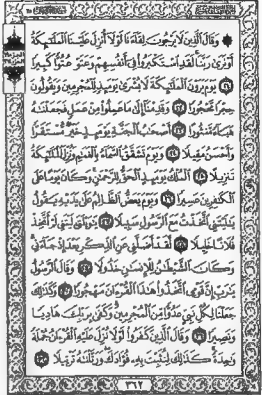 وَقَالَ الَّذِينَ لَا يَرْجُونَ لِقَاءَنَا لَوْلَا أُنزِلَ عَلَيْنَا الْمَلَٰٓئِكَةُ
أَوْ نَرَىٰ رَبَّنَا لَقَدِ اسْتَكْبَرُوا فِي أَنفُسِهِمْ وَعَتَوْ عُتُوًّا كَبِيرًا
٢١ يَوْمَ يَرَوْنَ الْمَلَٰٓئِكَةَ لَا بُشْرَىٰ يَوْمَئِذٍ لِّلْمُجْرِمِينَ وَيَقُولُونَ
حِجْرًا مَّحْجُورًا ٢٢ وَقَدِمْنَا إِلَىٰ مَا عَمِلُوا مِنْ عَمَلٍ فَجَعَلْنَاهُ
هَبَاءً مَّنثُورًا ٢٣ أَصْحَابُ الْجَنَّةِ يَوْمَئِذٍ خَيْرٌ مُّسْتَقَرًّا
وَأَحْسَنُ مَقِيلًا ٢٤ وَيَوْمَ تَشَقَّقُ السَّمَاءُ بِالْغَمَامِ وَنُزِّلَ الْمَلَٰٓئِكَةُ
تَنزِيلًا ٢٥ الْمُلْكُ يَوْمَئِذٍ الْحَقُّ لِلرَّحْمَٰنِ وَكَانَ يَوْمًا عَلَى
الْكَافِرِينَ عَسِيرًا ٢٦ وَيَوْمَ يَعَضُّ الظَّالِمُ عَلَىٰ يَدَيْهِ يَقُولُ
يَا لَيْتَنِي اتَّخَذْتُ مَعَ الرَّسُولِ سَبِيلًا ٢٧ يَا وَيْلَتَىٰ لَيْتَنِي لَمْ أَتَّخِذْ
فُلَانًا خَلِيلًا ٢٨ لَّقَدْ أَضَلَّنِي عَنِ الذِّكْرِ بَعْدَ إِذْ جَاءَنِي
وَكَانَ الشَّيْطَانُ لِلْإِنسَانِ خَذُولًا ٢٩ وَقَالَ الرَّسُولُ
يَا رَبِّ إِنَّ قَوْمِي اتَّخَذُوا هَٰذَا الْقُرْآنَ مَهْجُورًا ٣٠ وَكَذَٰلِكَ
جَعَلْنَا لِكُلِّ نَبِيٍّ عَدُوًّا مِّنَ الْمُجْرِمِينَ وَكَفَىٰ بِرَبِّكَ هَادِيًا
وَنَصِيرًا ٣١ وَقَالَ الَّذِينَ كَفَرُوا لَوْلَا نُزِّلَ عَلَيْهِ الْقُرْآنُ جُمْلَةً
وَاحِدَةً كَذَٰلِكَ لِنُثَبِّتَ بِهِ فُؤَادَكَ وَرَتَّلْنَاهُ تَرْتِيلًا ٣٢
٣٦٢